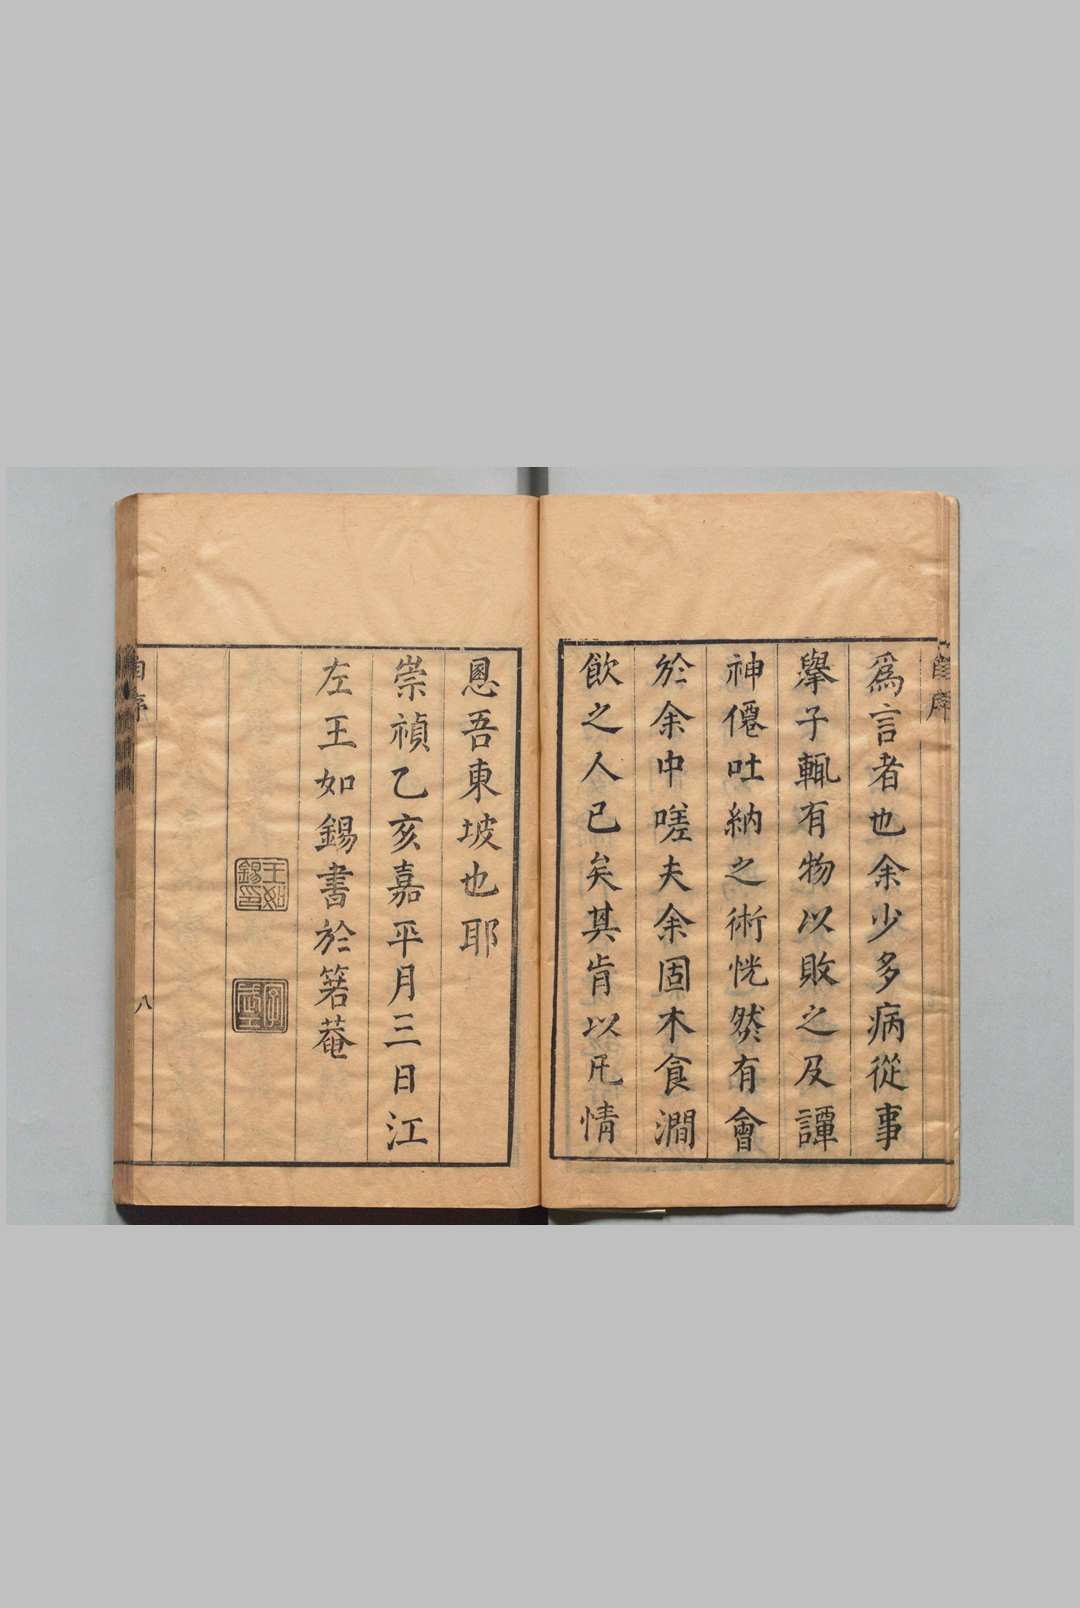 爲言者也余少多病從事
舉子輒有物以敗之及譚
神僊吐納之術恍然有會
於余中嗟夫余固木食澗
飲之人已矣其肯以凡情
恩吾東坡也耶
崇禎乙亥嘉平月三日江
左王如錫書於箬菴
王如錫印
序
八